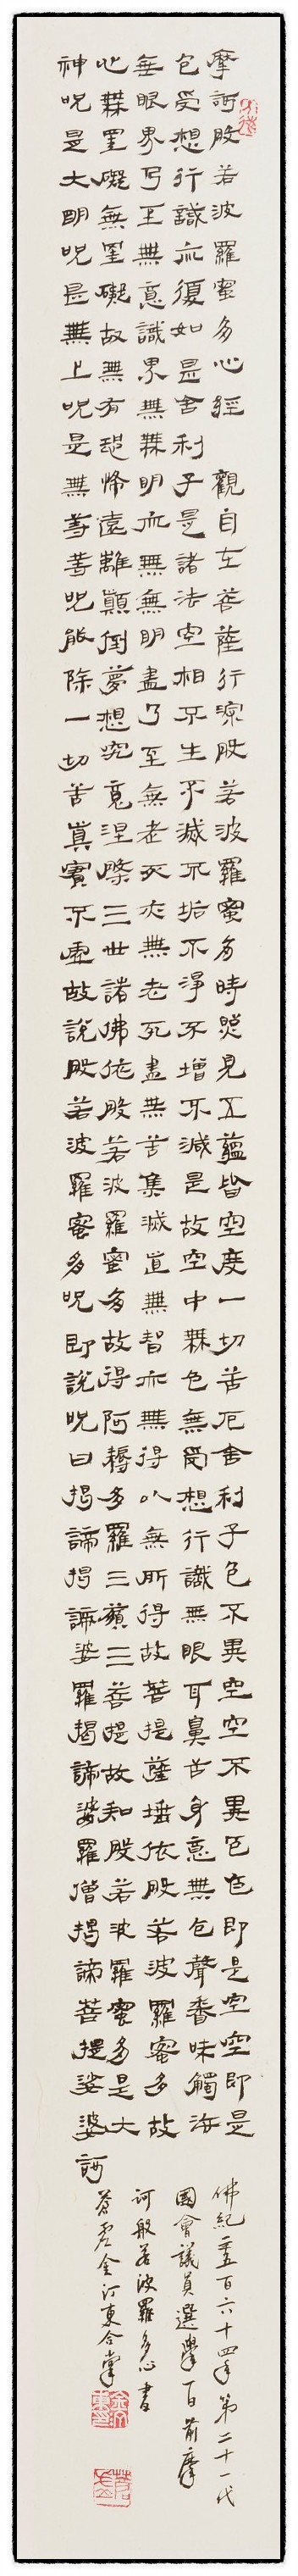 摩訶般若波羅蜜多心經 觀自在菩薩行深般若波羅蜜多時照見五蘊皆空度一切苦厄舍利子色不異空空不異色色即是空空即是
色受想行識亦復如是舍利子是諸法空相不生不滅不垢不淨不增不減是故空中無色無受想行識無眼耳鼻舌身意無色聲香味觸法
無眼界乃至無意識界無無明亦無無明盡乃至無老死亦無老死盡無苦集滅道無智亦無得以無所得故菩提薩埵依般若波羅蜜多故
心無罣礙無罣礙故無有恐怖遠離顛倒夢想究竟涅槃三世諸佛依般若波羅蜜多故得阿耨多羅三藐三菩提故知般若波羅蜜多是大
神呪是大明呪是無上呪是無等等呪能除一切苦真實不虛故說般若波羅蜜多呪即說呪曰揭諦揭諦婆羅揭諦婆羅僧揭諦菩提娑婆訶
佛紀二千五百六十四年第二十一代
國會議員選擧一日前摩
訶般若波羅多心書
金汀東合掌